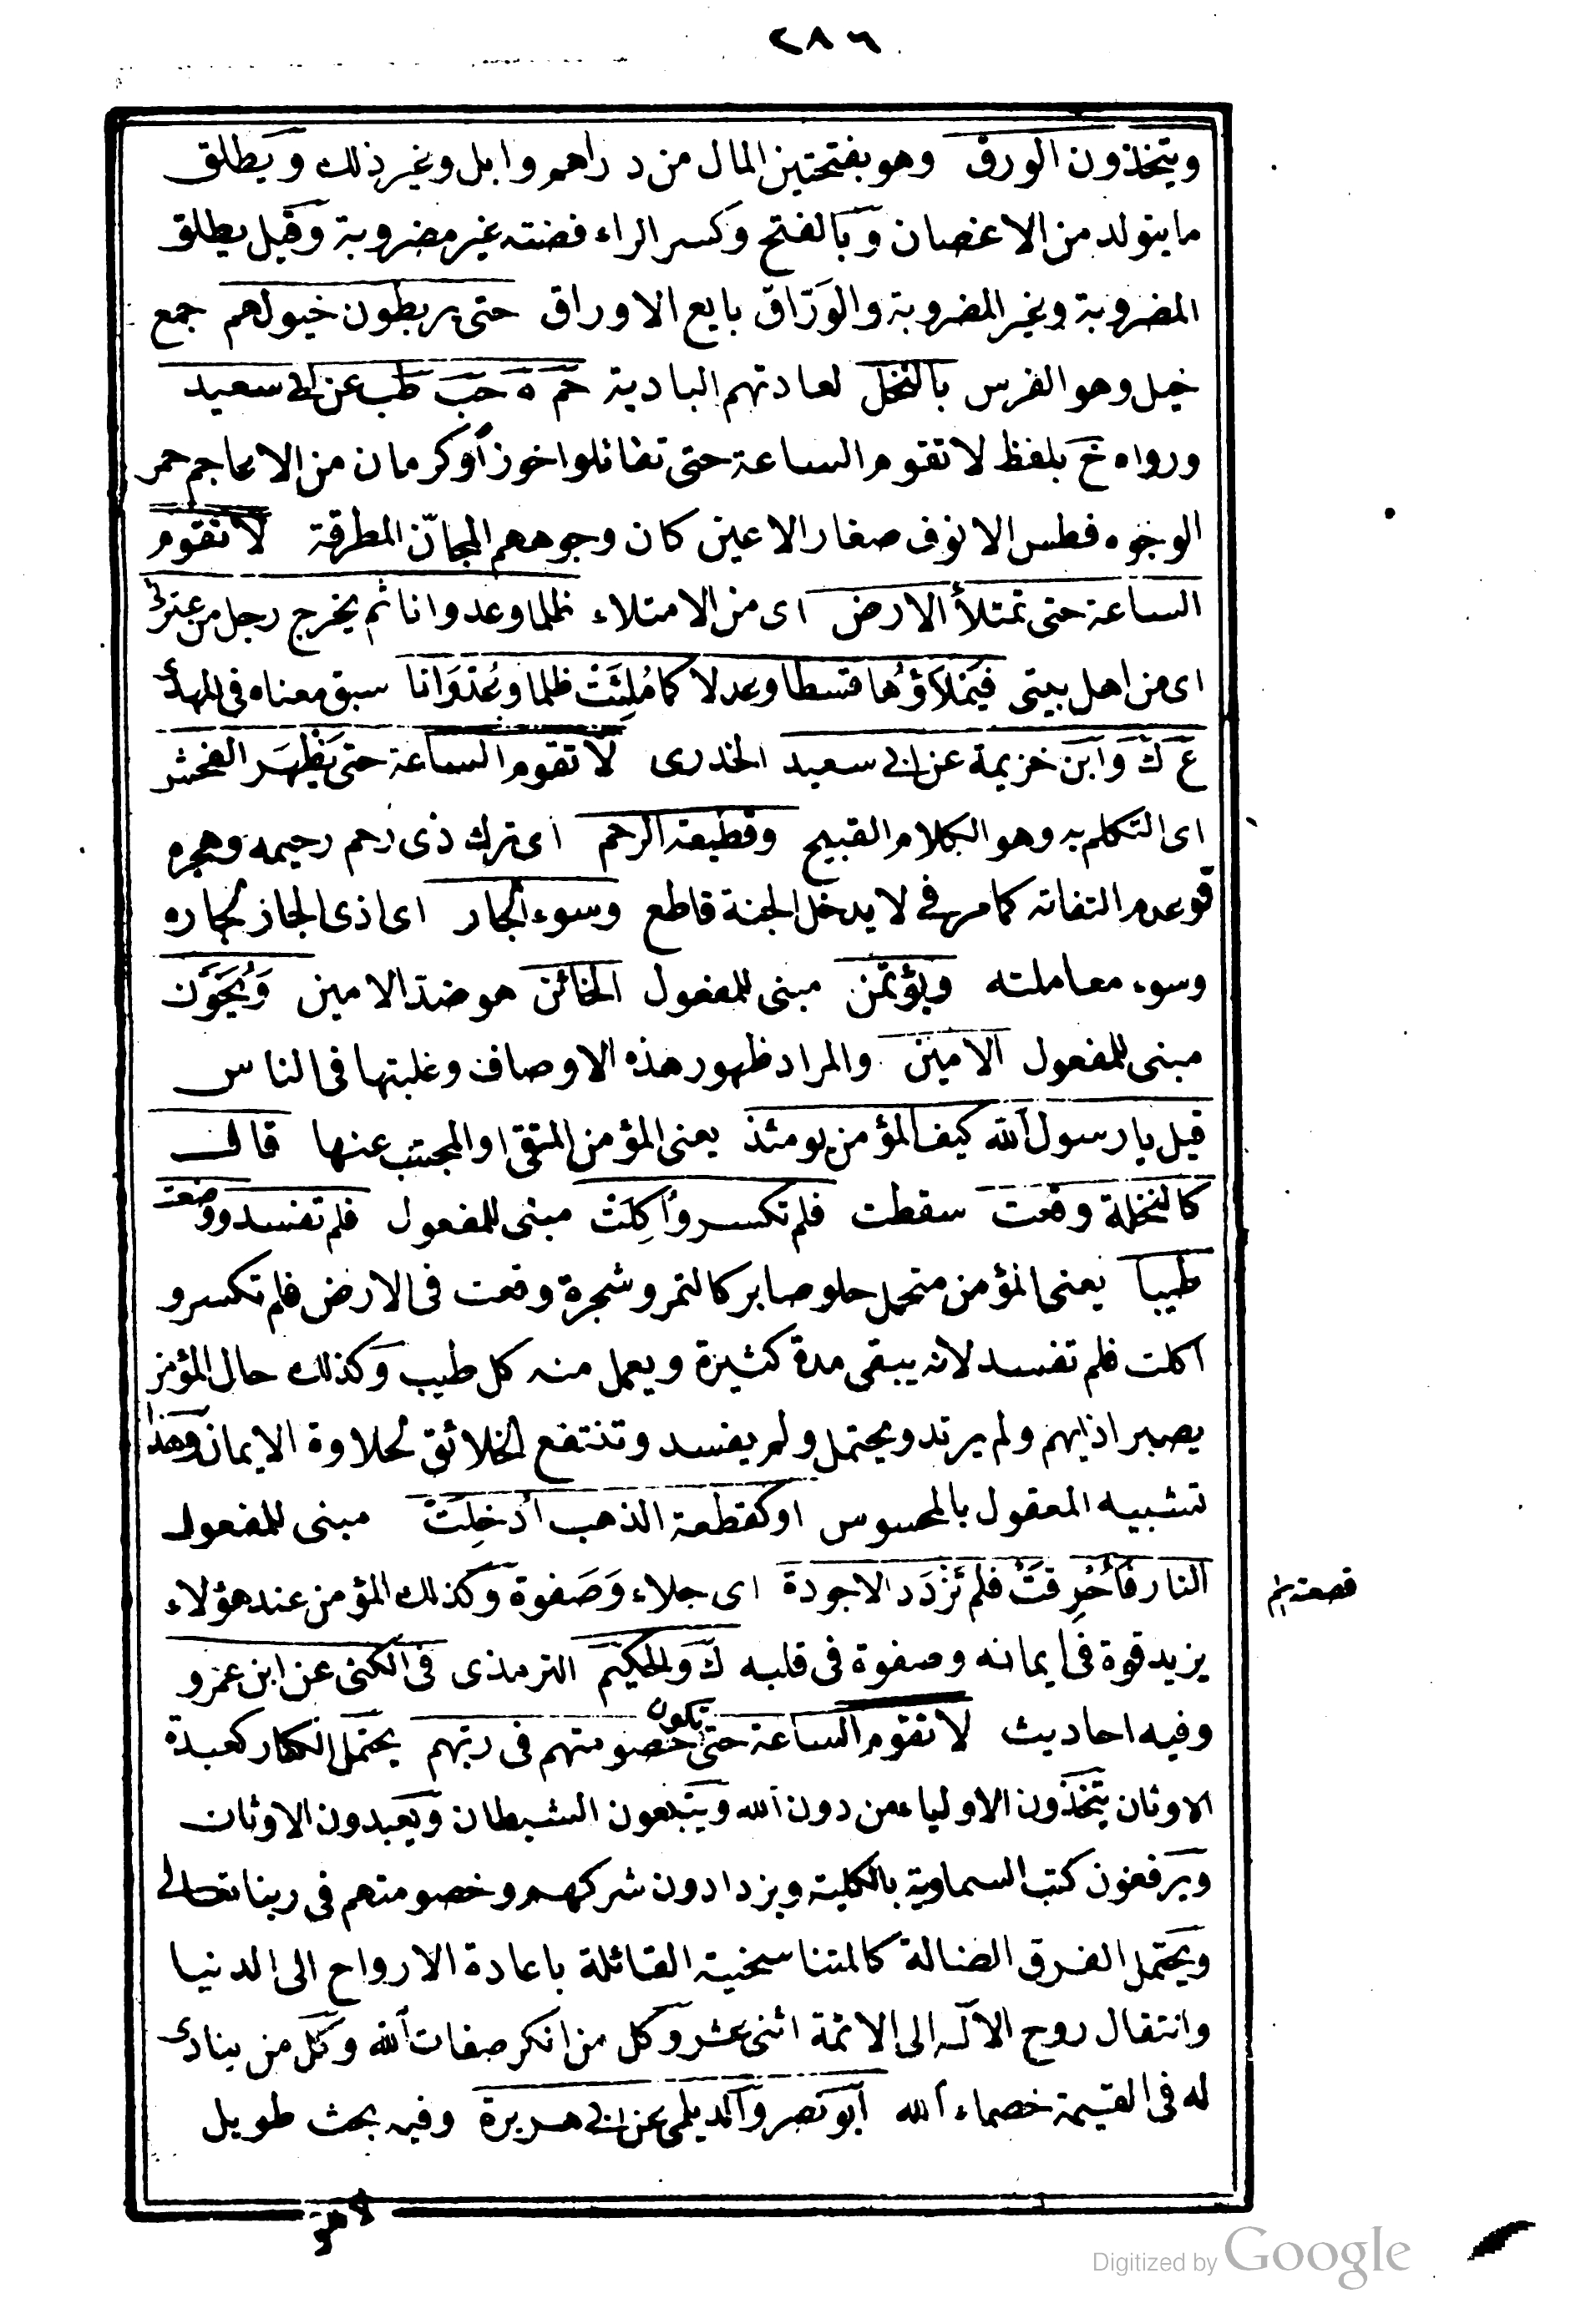 ٢٨٦
ويتخذون الورق وهو بفتحتين المال من دراهم وابل وغير ذلك ويطلق
ما يتولد من الاغصان وبالفتح وكسر الراء فضته غير مضروبة وقيل يطلق
المضروبة وغير المضروبة والورّاق بايع الاوراق حتى يربطون خيولهم جمع
خيل وهو الفرس بالنخل لعادتهم البادية حم ه حب طب عن ابى سعيد
ورواه خ بلفظ لا تقوم الساعة حتى تقاتلوا خوزا وكرمان من الاعاجم حمر
الوجوه فطس الانوف صغار الاعين كان وجوههم المجانّ المطرقة لا تقوم
الساعة حتى تمتلأ الارض اى من الامتلاء ظلما وعدوانا ثم يخرج رجل من عترتى
اى من اهل بيتى فَيَمْلَاؤُها قسطا وعدلا كما مُلِئَتْ ظلما وعُدْوَانا سبق معناه فى المهدى
ع ك وابن خزيمة عن ابى سعيد الخدرى لا تقوم الساعة حتى يَظْهَرَ الفحش
اى التكلم به وهو الكلام القبيح وقطيعة الرحم اى ترك ذى رحم رحيمه وهجره
وعدم التفاته كما مر فى لا يدخل الجنة قاطع وسوء الجار اى اذى الجار لجاره
وسوء معاملته ويؤتمن مبنى للمفعول الخائن هو ضد الامين وَيُخَوَّن
مبنى للمفعول الامين والمراد ظهور هذه الاوصاف وغلبتها فى الناس
قيل يا رسول الله كيف المؤمن يومئذ يعنى المؤمن المتقى او المجتنب عنها قال
كالنخلة وقعت سقطت فلم تكسر واُكِلَتْ مبنى للمفعول فلم تفسد ووضعت
طيبا يعنى المؤمن متحمل حلو صابر كالتمر وشجرة وقعت فى الارض فلم تكسر و
اكلت فلم تفسد لانه يبقى مدة كثيرة ويعمل منه كل طيب وكذلك حال المؤمن
يصبر اذايهم ولم يرتد ويحتمل ولم يفسد وتنتفع الخلائق لحلاوة الايمان وهذا
تشبيه المعقول بالمحسوس او كقطعة الذهب اُدْخِلَتْ مبنى للمفعول
النار فَاُحْرِقَتْ فلم تَزْدَد الا جودة اى جلاء وَصَفوة وكذلك المؤمن عند هؤلاء
يزيد قوة فى ايمانه وصفوة فى قلبه ك والحكيم الترمذى فى الكنى عن ابن عمرو
وفيه احاديث لا تقوم الساعة حتى تكون خصومتهم فى ربهم يحتمل الكفار كعبدة
الاوثان يتّخذون الاولياء من دون الله ويتّبعون الشيطان ويعبدون الاوثان
ويرفعون كتب السماوية بالكلية ويزدادون شركهم وخصومتهم فى ربنا تعالى
ويحتمل الفرق الضالة كالمتناسخية القائلة باعادة الارواح الى الدنيا
وانتقال روح الاله الى الائمة اثنى عشر وكل من انكر صفات الله وكل من ينادى
له فى القيمة خصماء الله ابو نصر والديلمى عن ابى هريرة وفيه بحث طويل
لا تقوم
Digitized by Google